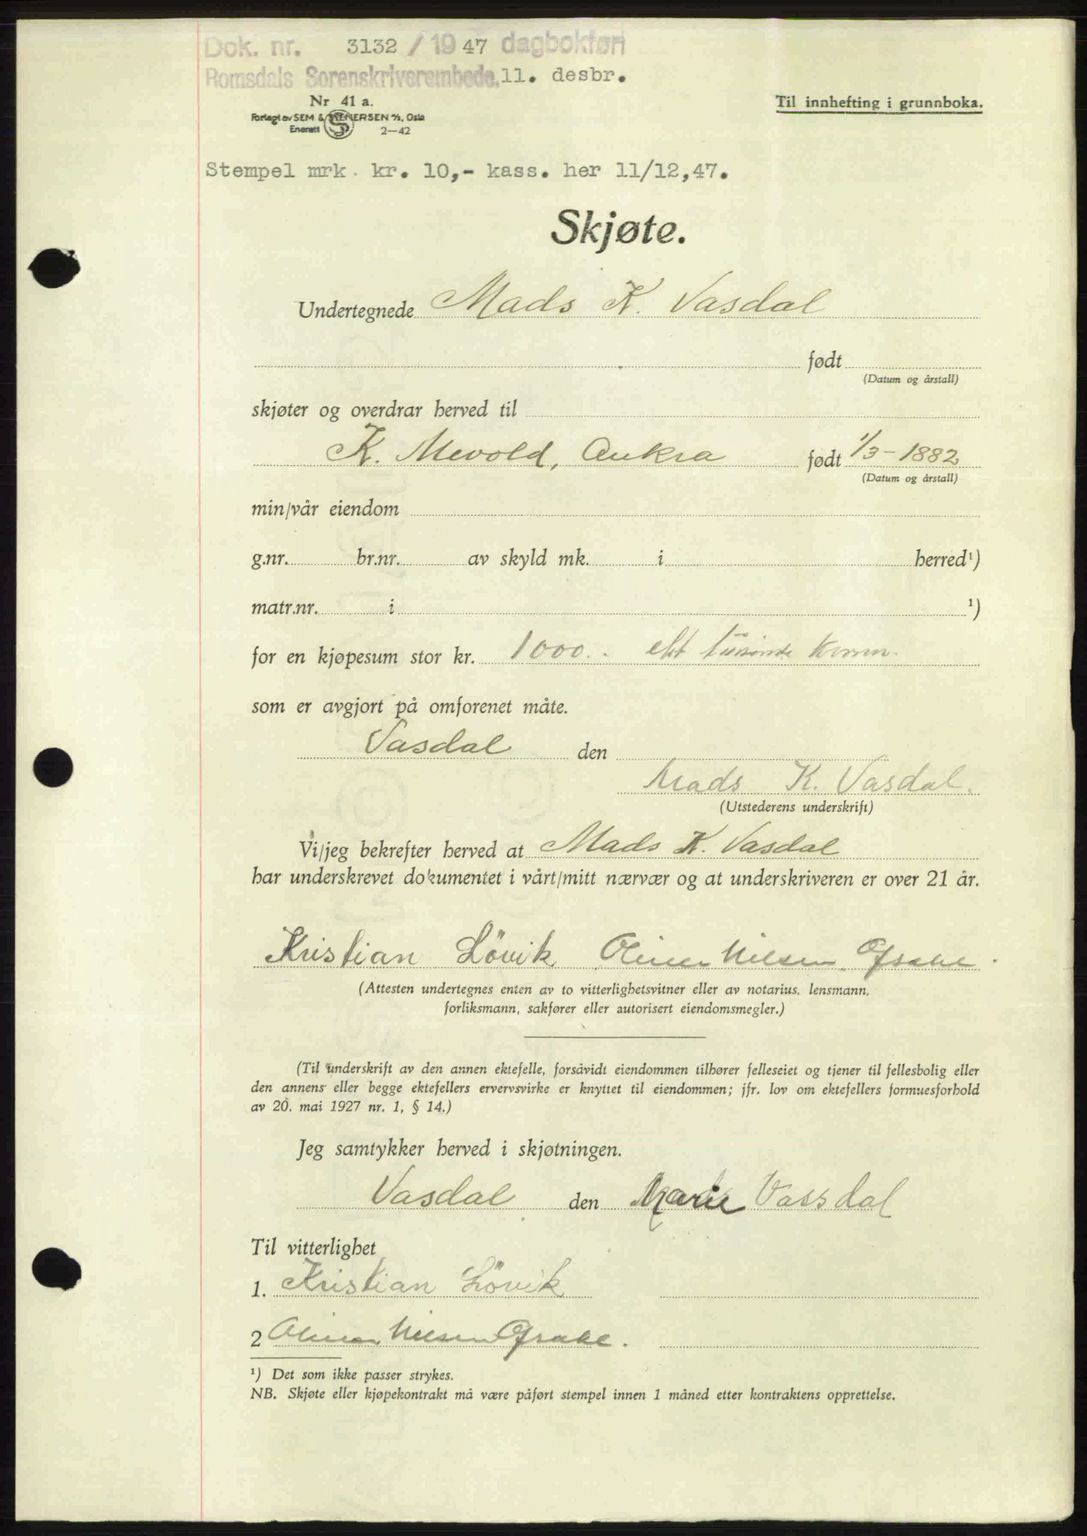 Dok. nr. 3132 / 1947 dagbokført
Romsdals Sorenskriverembede. 11. desbr.
Nr 41 a.
Til innhefting i grunnboka.
Forlagt av SEM & STENERSEN A/S, Oslo
Enerett 2—42
Stempel mrk. kr. 10,- kass. her 11/12,47.
Skjøte.
Undertegnede Mads K. Vasdal
født
(Datum og årstall)
skjøter og overdrar herved til
K. Mevold, Aukra født 1/3-1882
(Datum og årstall)
min/vår eiendom
g.nr. br.nr. av skyld mk. i herred¹)
matr.nr. i ¹)
for en kjøpesum stor kr. 1000.
som er avgjort på omforenet måte.
Vasdal den
Mads K. Vasdal.
(Utstederens underskrift)
Vi/jeg bekrefter herved at Mads K. Vasdal
har underskrevet dokumentet i vårt/mitt nærvær og at underskriveren er over 21 år.
Kristian Lövik Nilsen
(Attesten undertegnes enten av to vitterlighetsvitner eller av notarius, lensmann,
forliksmann, sakfører eller autorisert eiendomsmegler.)
(Til underskrift av den annen ektefelle, forsåvidt eiendommen tilhører felleseiet og tjener til fellesbolig eller
den annens eller begge ektefellers ervervsvirke er knyttet til eiendommen; jfr. lov om ektefellers formuesforhold
av 20. mai 1927 nr. 1, § 14.)
Jeg samtykker herved i skjøtningen.
Vasdal den Marie Vassdal
Til vitterlighet
1. Kristian Lövik
2 Nilsen
¹) Det som ikke passer strykes.
NB. Skjøte eller kjøpekontrakt må være påført stempel innen 1 måned etter kontraktens opprettelse.